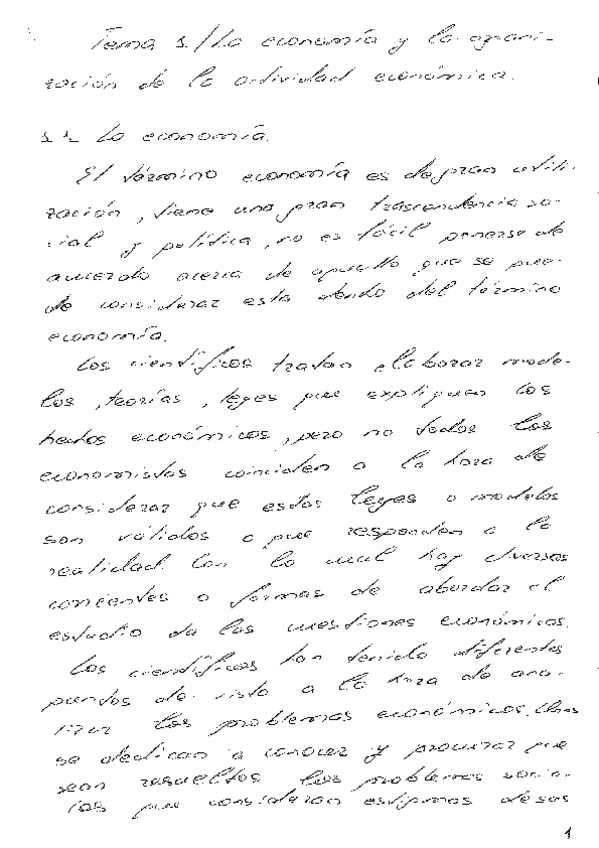 Tema 1./La economía y la organi-
zación de la actividad económica.
1.1. La economía.
El término economía es de gran utili-
zación, tiene una gran trascendencia so-
cial y política, no es fácil ponerse de
acuerdo acerca de aquello que se pue-
de considerar esta dando del término
economía.
Los científicos tratan elaborar mode-
los, teorías, leyes que expliquen los
hechos económicos, pero no todos los
economistas coinciden a la hora de
considerar que estas leyes o modelos
son válidos o que responden a la
realidad. Con lo cual hay diversas
corrientes o formas de abordar el
estudio de las cuestiones económicas.
Los científicos han tenido diferentes
puntos de vista a la hora de ana-
lizar los problemas económicos. Unos
se dedican a conocer y procurar que
sean resueltos los problemas socia-
les que consideran
1